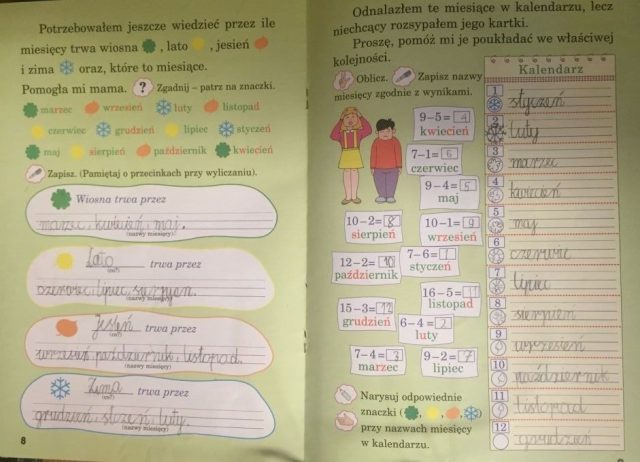 Potrzebowałem jeszcze wiedzieć przez ile
miesięcy trwa wiosna , lato , jesień
i zima oraz, które to miesiące.
Pomogła mi mama. ? Zgadnij – patrz na znaczki.
marzec wrzesień luty listopad
czerwiec grudzień lipiec styczeń
maj sierpień październik kwiecień
Zapisz. (Pamiętaj o przecinkach przy wyliczaniu).
Wiosna trwa przez
marzec, kwiecień, maj.
(nazwy miesięcy)
Lato trwa przez
(co?)
czerwiec, lipiec, sierpień.
(nazwy miesięcy)
Jesień trwa przez
(co?)
wrzesień, październik, listopad.
(nazwy miesięcy)
Zima trwa przez
(co?)
grudzień, luty.
(nazwy miesięcy)
8
Odnalazłem te miesiące w kalendarzu, lecz
niechcący rozsypałem jego kartki.
Proszę, pomóż mi je poukładać we właściwej
kolejności.
Oblicz. Zapisz nazwy
miesięcy zgodnie z wynikami.
9–5= 4
kwiecień
7–1= 6
czerwiec
9–4= 5
maj
10–2= 8
sierpień
10–1= 9
wrzesień
12–2= 10
październik
7–6= 1
styczeń
15–3= 12
grudzień
16–5= 11
listopad
6–4= 2
luty
7–4= 3
marzec
9–2= 7
lipiec
Narysuj odpowiednie
znaczki ( , , , )
przy nazwach miesięcy
w kalendarzu.
Kalendarz
1 styczeń
2 luty
3 marzec
4 kwiecień
5 maj
6 czerwiec
7 lipiec
8 sierpień
9 wrzesień
10 październik
11 listopad
12 grudzień